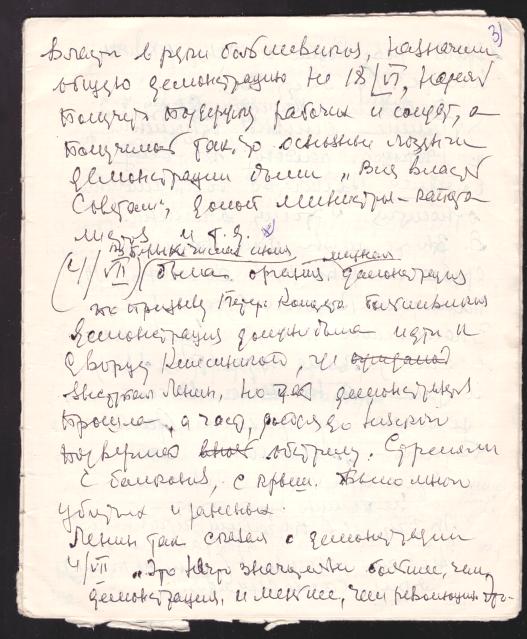 3)
власти в руки большевиков, назначили
общую демонстрацию на 18/VI, надеясь
получить поддержку рабочих и солдат, а
получилось так, что основные лозунги
демонстрации были "Вся власть
Советам", долой министры-капита
листов и т.д.
мирная
(4/VII) была организ демонстрация
по призыву Петерс Комитета большевиков
Демонстрация должна была идти к
дворцу Кшесинского, где
выступал Ленин, но демонстрация
прошла, а часть, дойдя до Невского
подверглась обстрелу. Стреляли
с балконов, с крыш. Было много
убитых и раненых.
Ленин так сказал о демонстрации
4/VII "Это нечто значительно большее, чем
демонстрация, и меньшее, чем революция